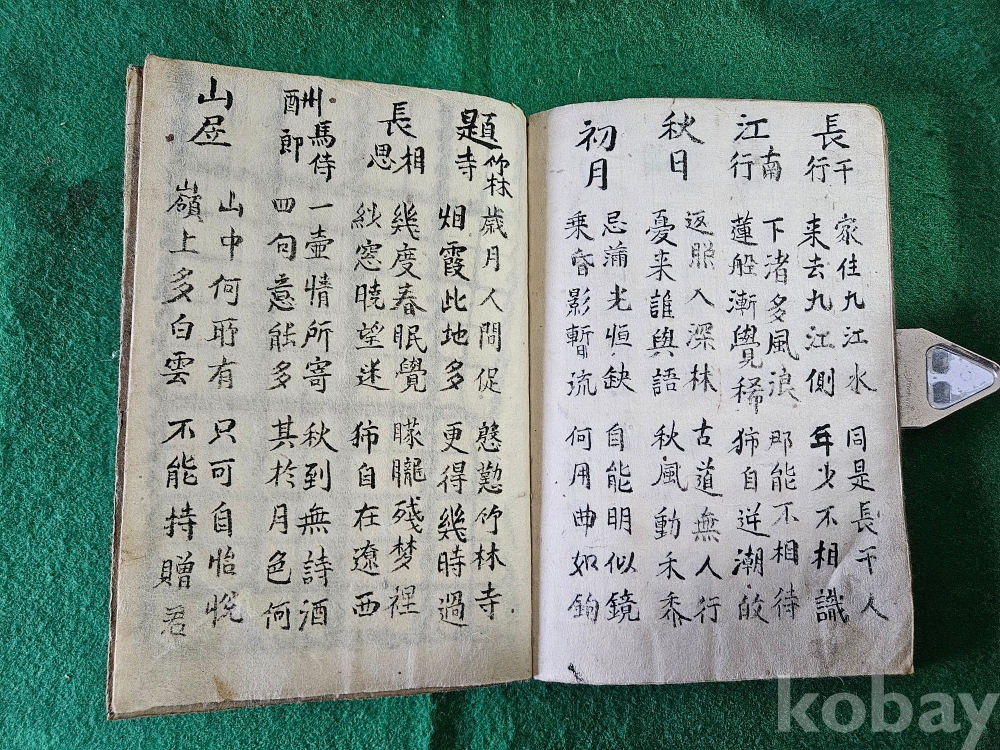 長干行
家住九江水 同是長干人
来去九江側 年少不相識
江南行
下渚多風浪 那能不相待
蓮船漸覺稀 独自逆潮皈
秋日
返照入深林 古道無人行
憂来誰與語 秋風動禾黍
初月
忌滿光恒缺 自能明似鏡
乘昏影暫流 何用曲如鉤
題竹林寺
歲月人間促 慇懃竹林寺
烟霞此地多 更得幾時過
長相思
幾度春眠覺 朦朧残梦裡
紗窓暁望迷 独自在遼西
酬馬侍郎
一壺情所寄 秋到無詩酒
四句意能多 其於月色何
山居
山中何所有 只可自怡悅
嶺上多白雲 不能持贈君
kobay